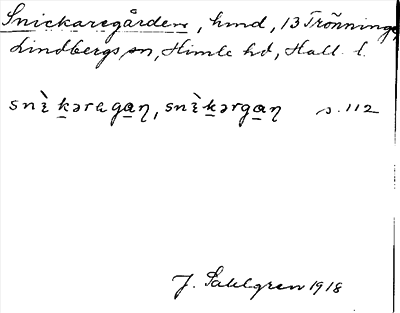 Snickaregården, hmd, 13 Trönninge,
Lindbergs sn, Himle hd, Hall. l.
snὶkəragaη, snὶkərgaη s. 112
J. Sahlgren 1918